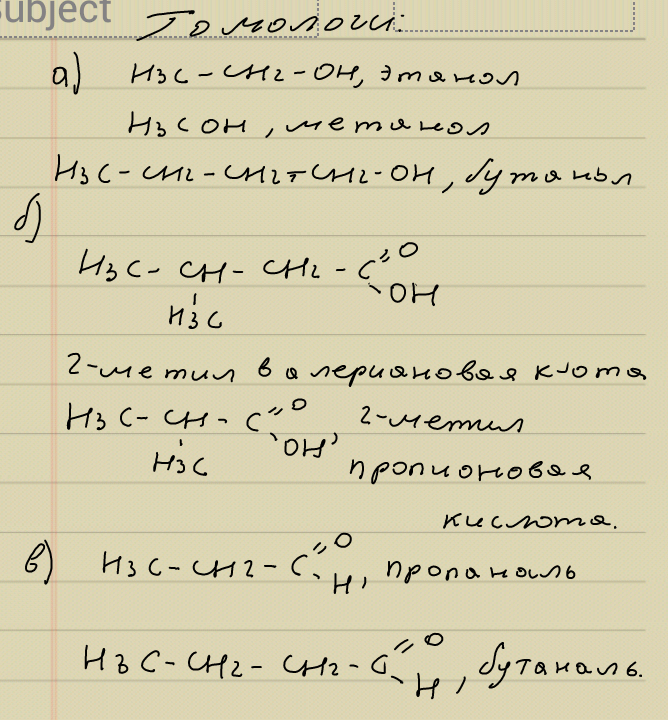 Subject
Гомологи:
а) H3C – CH2 – OH, этанол
H3COH, метанол
H3C – CH2 – CH2 – CH2 – OH, бутанол
б)
H3C – CH – CH2 – C = O
OH
H3C
2-метил валериановая к-ота
H3C – CH – C = O
OH, 2-метил
H3C
пропионовая
кислота.
в) H3C – CH2 – C = O
H, пропаналь
H3C – CH2 – CH2 – C = O
H, бутаналь.